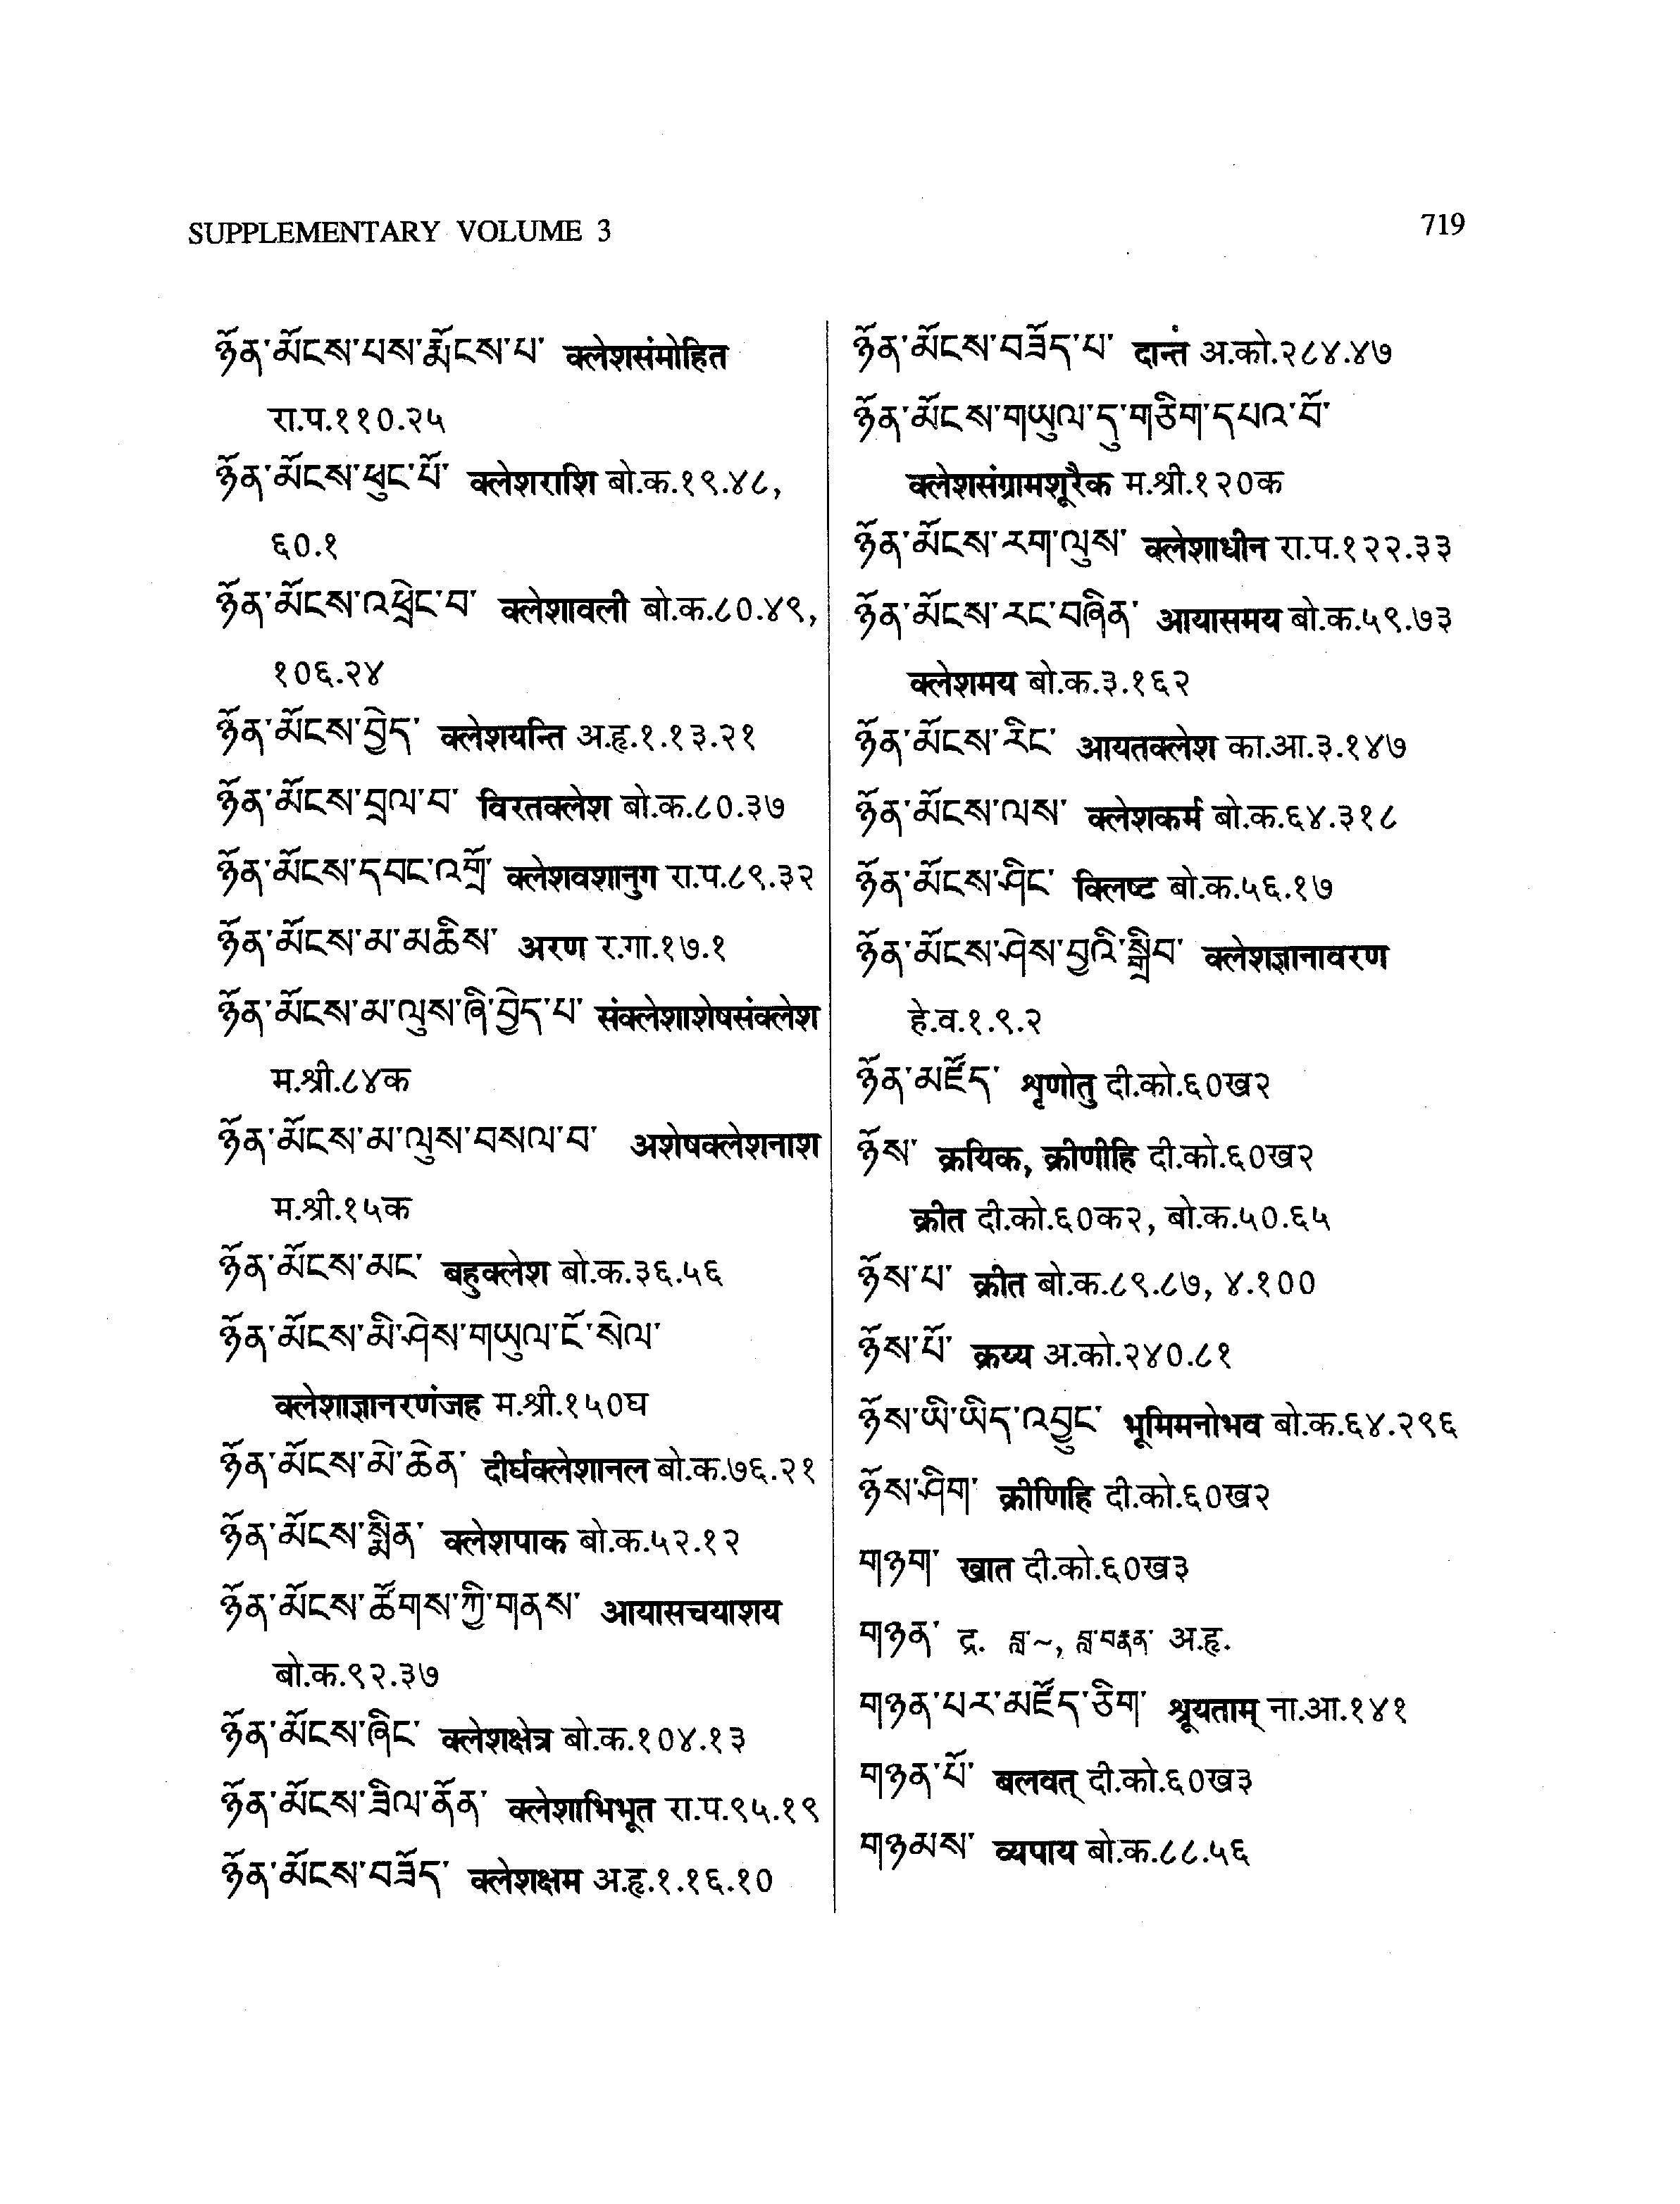 SUPPLEMENTARY VOLUME 3
719
ཉོན་མོངས་པས་རྨོངས་པ་ क्लेशसंमोहित
रा.प.११०.२५
ཉོན་མོངས་ཕུང་པོ་ क्लेशराशि बो.क.१९.४८,
६०.१
ཉོན་མོངས་འཕྲེང་བ་ क्लेशावली बो.क.८०.४९,
१०६.२४
ཉོན་མོངས་བྱེད་ क्लेशयन्ति अ.हृ.१.१३.२१
ཉོན་མོངས་བྲལ་བ་ विरतक्लेश बो.क.८०.३७
ཉོན་མོངས་དབང་འགྲོ་ क्लेशवशानुग रा.प.८९.३२
ཉོན་མོངས་མ་མཆིས་ अरण र.गा.१७.१
ཉོན་མོངས་མ་ལུས་ཞི་བྱེད་པ་ संक्लेशाशेषसंक्लेश
म.श्री.८४क
ཉོན་མོངས་མ་ལུས་བསལ་བ་ अशेषक्लेशनाश
म.श्री.१५क
ཉོན་མོངས་མང་ बहुक्लेश बो.क.३६.५६
ཉོན་མོངས་མི་ཤེས་གཡུལ་ངོ་སེལ་
क्लेशाज्ञानरणंजह म.श्री.१५०घ
ཉོན་མོངས་མེ་ཆེན་ दीर्घक्लेशानल बो.क.७६.२१
ཉོན་མོངས་སྨིན་ क्लेशपाक बो.क.५२.१२
ཉོན་མོངས་ཚོགས་ཀྱི་གནས་ आयासचयाशय
बो.क.९२.३७
ཉོན་མོངས་ཞིང་ क्लेशक्षेत्र बो.क.१०४.१३
ཉོན་མོངས་ཟིལ་ནོན་ क्लेशाभिभूत रा.प.९५.१९
ཉོན་མོངས་བཟོད་ क्लेशक्षम अ.हृ.१.१६.१०
ཉོན་མོངས་བཟོད་པ་ दान्तं अ.को.२८४.४७
ཉོན་མོངས་གཡུལ་དུ་གཅིག་དཔའ་བོ་
क्लेशसंग्रामशूरैक म.श्री.१२०क
ཉོན་མོངས་རག་ལུས་ क्लेशाधीन रा.प.१२२.३३
ཉོན་མོངས་རང་བཞིན་ आयासमय बो.क.५९.७३
क्लेशमय बो.क.३.१६२
ཉོན་མོངས་རིང་ आयतक्लेश का.आ.३.१४७
ཉོན་མོངས་ལས་ क्लेशकर्म बो.क.६४.३१८
ཉོན་མོངས་ཤིང་ क्लिष्ट बो.क.५६.१७
ཉོན་མོངས་ཤེས་བྱའི་སྒྲིབ་ क्लेशज्ञानावरण
हे.व.१.९.२
ཉོན་མཛོད་ शृणोतु दी.को.६०ख२
ཉོས་ क्रयिक, क्रीणीहि दी.को.६०ख२
क्रीत दी.को.६०क२, बो.क.५०.६५
ཉོས་པ་ क्रीत बो.क.८९.८७, ४.१००
ཉོས་པོ་ क्रय्य अ.को.२४०.८१
ཉོས་ཡི་ཡིད་འབྱུང་ भूमिमनोभव बो.क.६४.२९६
ཉོས་ཤིག་ क्रीणिहि दी.को.६०ख२
གཉག་ खात दी.को.६०ख३
གཉན་ द्र. བླ་~, བླ་བརྣན་ अ.हृ.
གཉན་པར་མཛོད་ཅིག་ श्रूयताम् ना.आ.१४१
གཉན་པོ་ बलवत् दी.को.६०ख३
གཉམས་ व्यपाय बो.क.८८.५६